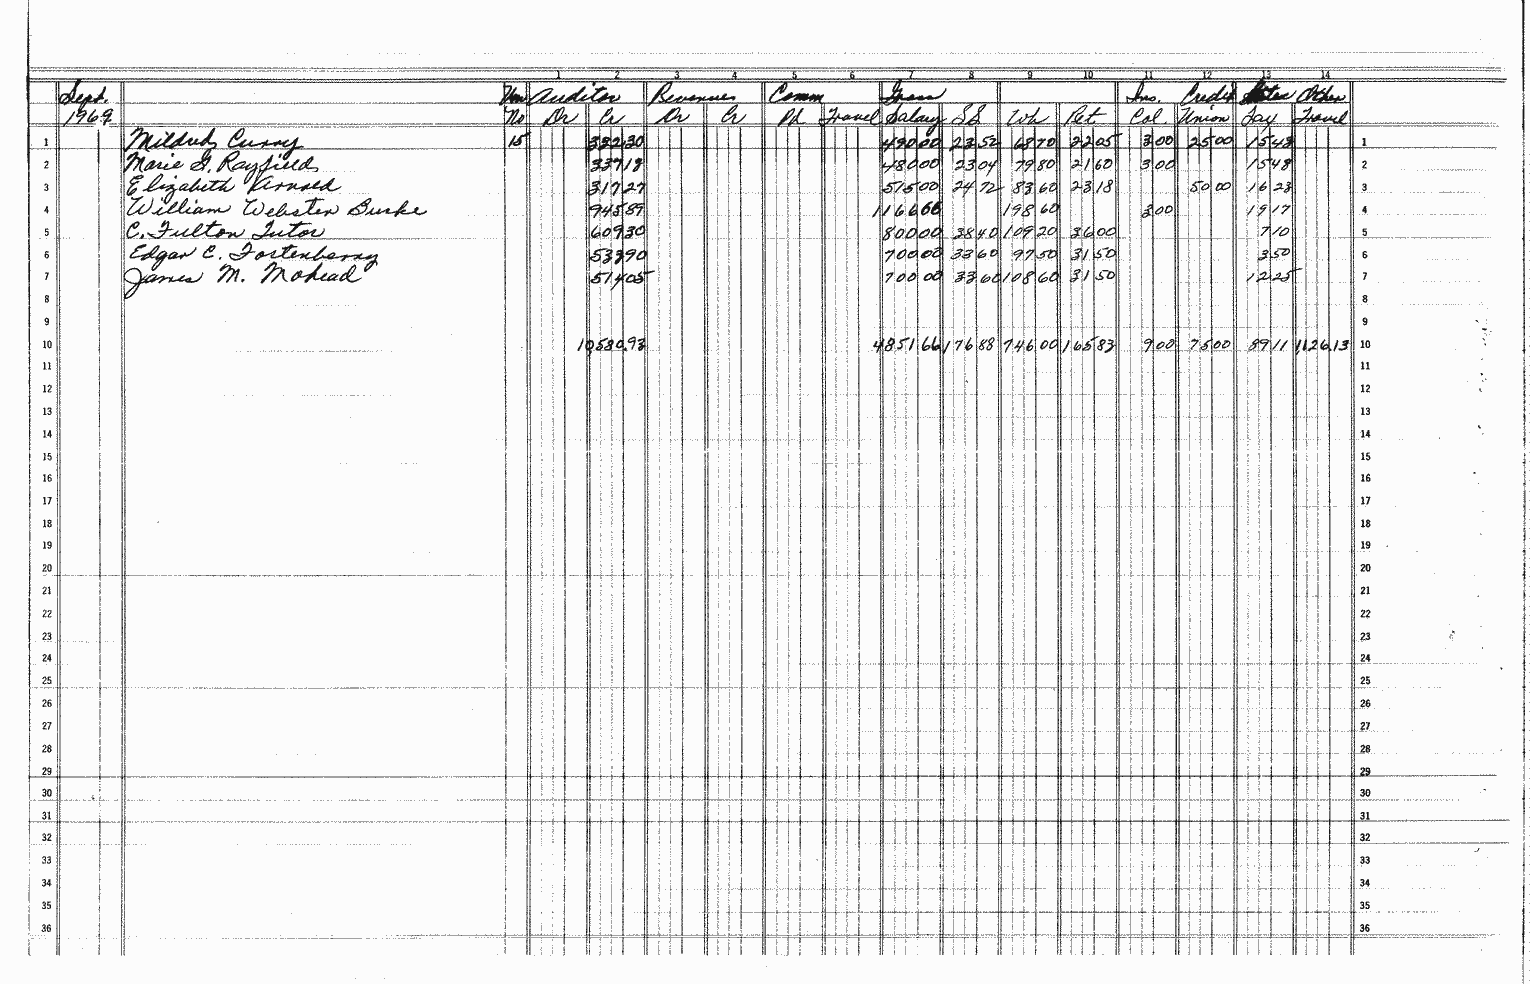 1 2 3 4 5 6 7 8 9 10 11 12 13 14
Sept. Auditor Revenues Comm Gross Ins. Credit States Other
1969 No Dr Cr Dr Cr Pd Travel Salary SS Wh Ret Col. Union Tax Travel
1 Mildred Curry 15 332 30 490 00 23 52 68 70 22 05 3 00 25 00 15 43 1
2 Marie G. Rayfield 337 18 480 00 23 04 79 80 21 60 3 00 15 48 2
3 Elizabeth Arnold 317 27 515 00 24 72 83 60 23 18 50 00 16 23 3
4 William Webster Burke 945 89 1166 66 198 60 3 00 19 17 4
5 C. Fulton Tutor 609 30 800 00 38 40 109 20 36 00 7 10 5
6 Edgar C. Fortenberry 533 90 700 00 33 60 97 50 31 50 3 50 6
7 James M. Mohead 514 05 700 00 33 60 108 60 31 50 12 25 7
8 8
9 9
10 10580.93 4851 66 176 88 746 00 165 83 9 00 75 00 89 11 1126 13 10
11 11
12 12
13 13
14 14
15 15
16 16
17 17
18 18
19 19
20 20
21 21
22 22
23 23
24 24
25 25
26 26
27 27
28 28
29 29
30 30
31 31
32 32
33 33
34 34
35 35
36 36